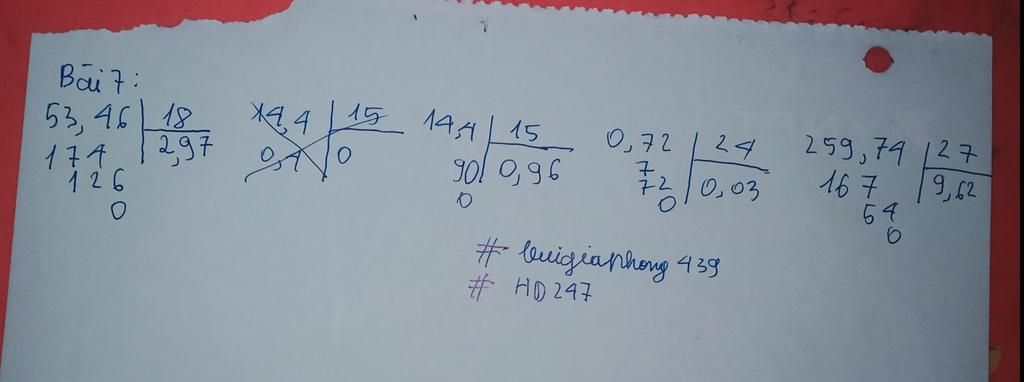 Bài 7:
53,46 18
174 2,97
126
0
14,4 15
0,4 0
14,4 15
90 0,96
0
0,72 24
7 0,03
72
0
259,74 27
167 9,62
54
0
# buigiaphong 439
# HD247